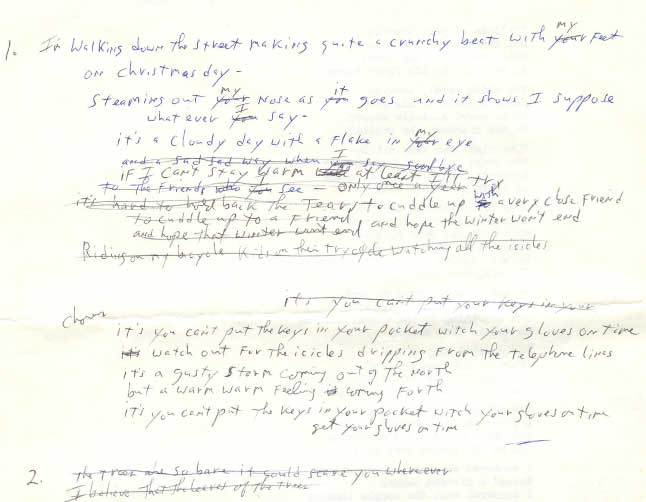 1. I'm Walking down the street making quite a crunchy beat with your my feet
on christmas day -
Steaming out your my nose as you it goes and it shows I suppose
what ever you I say -
it's a cloudy day with a flake in your my eye
and a sad sad way when you I say goodbye
if I can't stay warm at least I'll try
to the friends who you see - only once a year
it's hard to hold back the tears to cuddle up with a very close friend
to cuddle up to a friend and hope the winter won't end
and hope that winter won't end
Riding on my bicycle Kids on their trycycle watching all the icicles
its you cant put your keys in your
chorus
it's you can't put the keys in your pocket witch your gloves on time
its watch out for the icicles dripping from the telephone lines
it's a gusty storm coming out of the north
but a warm warm feeling is coming forth
it's you can't put the keys in your pocket witch your gloves on time
get your gloves on time
2. the trees are so bare it could scare you whereever
I believe that the leaves of the trees